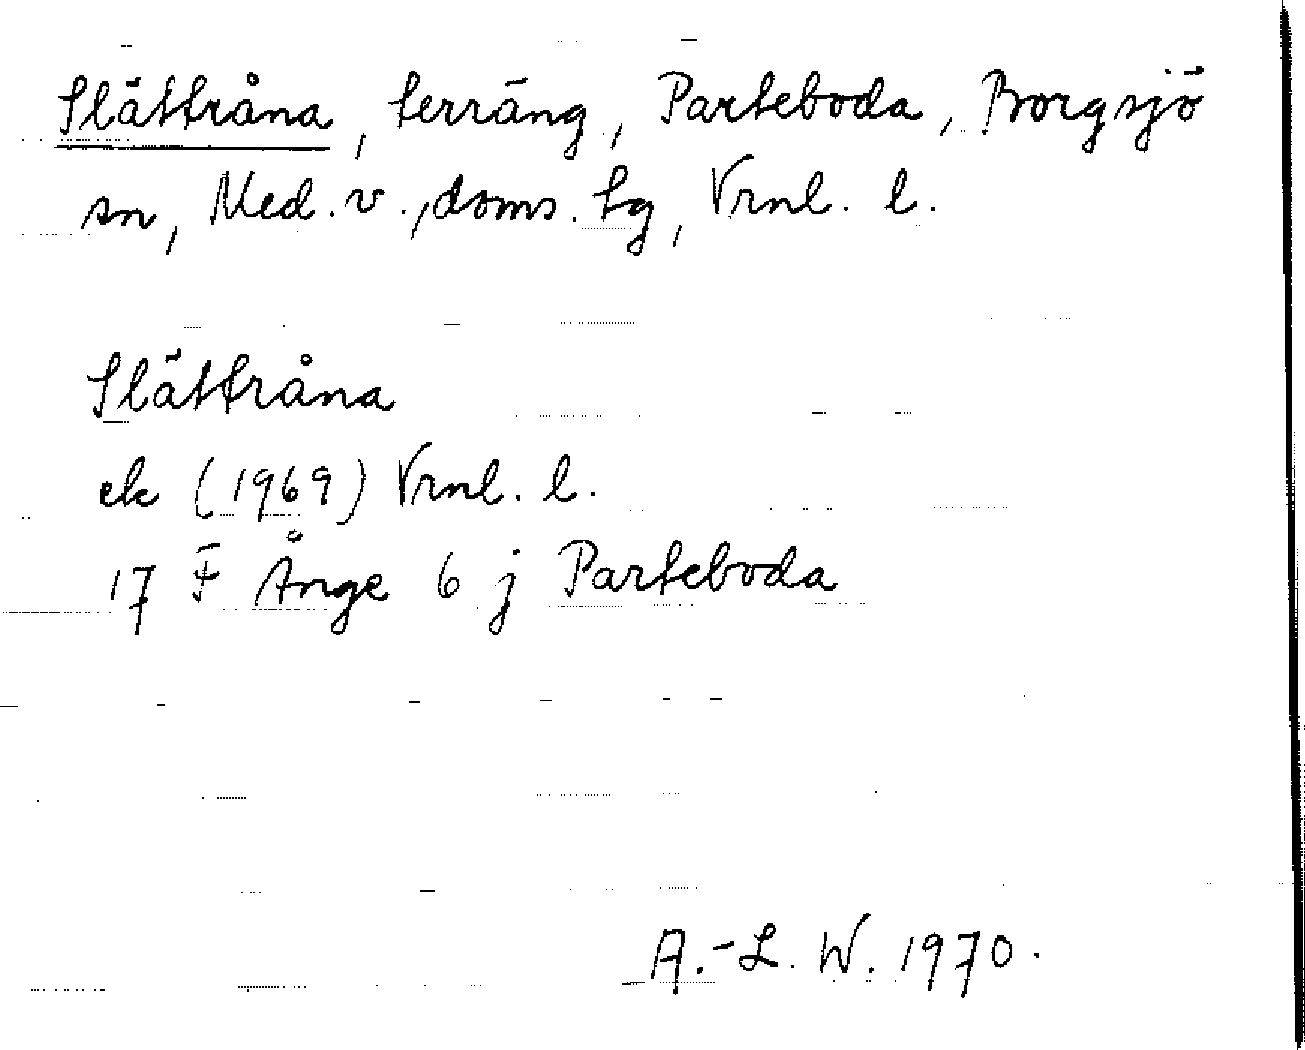 Slättråna, terräng, Parteboda, Borgsjö
sn, Med. v., doms. tg, Vrnl. l.
Slättråna
ek (1969) Vrnl. l.
17 F Ånge 6 j Parteboda
A.-L. W. 1970.